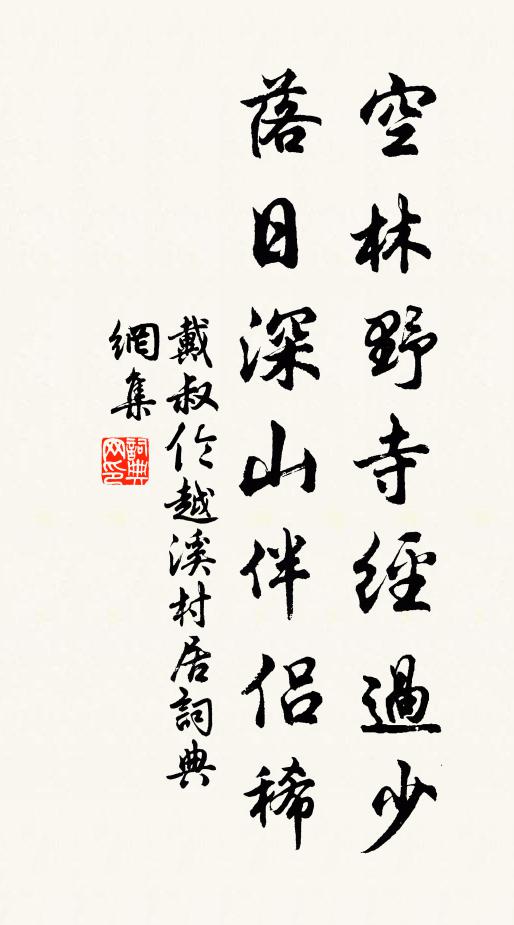 空林野寺經過少
落日深山伴侶稀
戴叔伦越溪村居詞典
網集
詞典網印